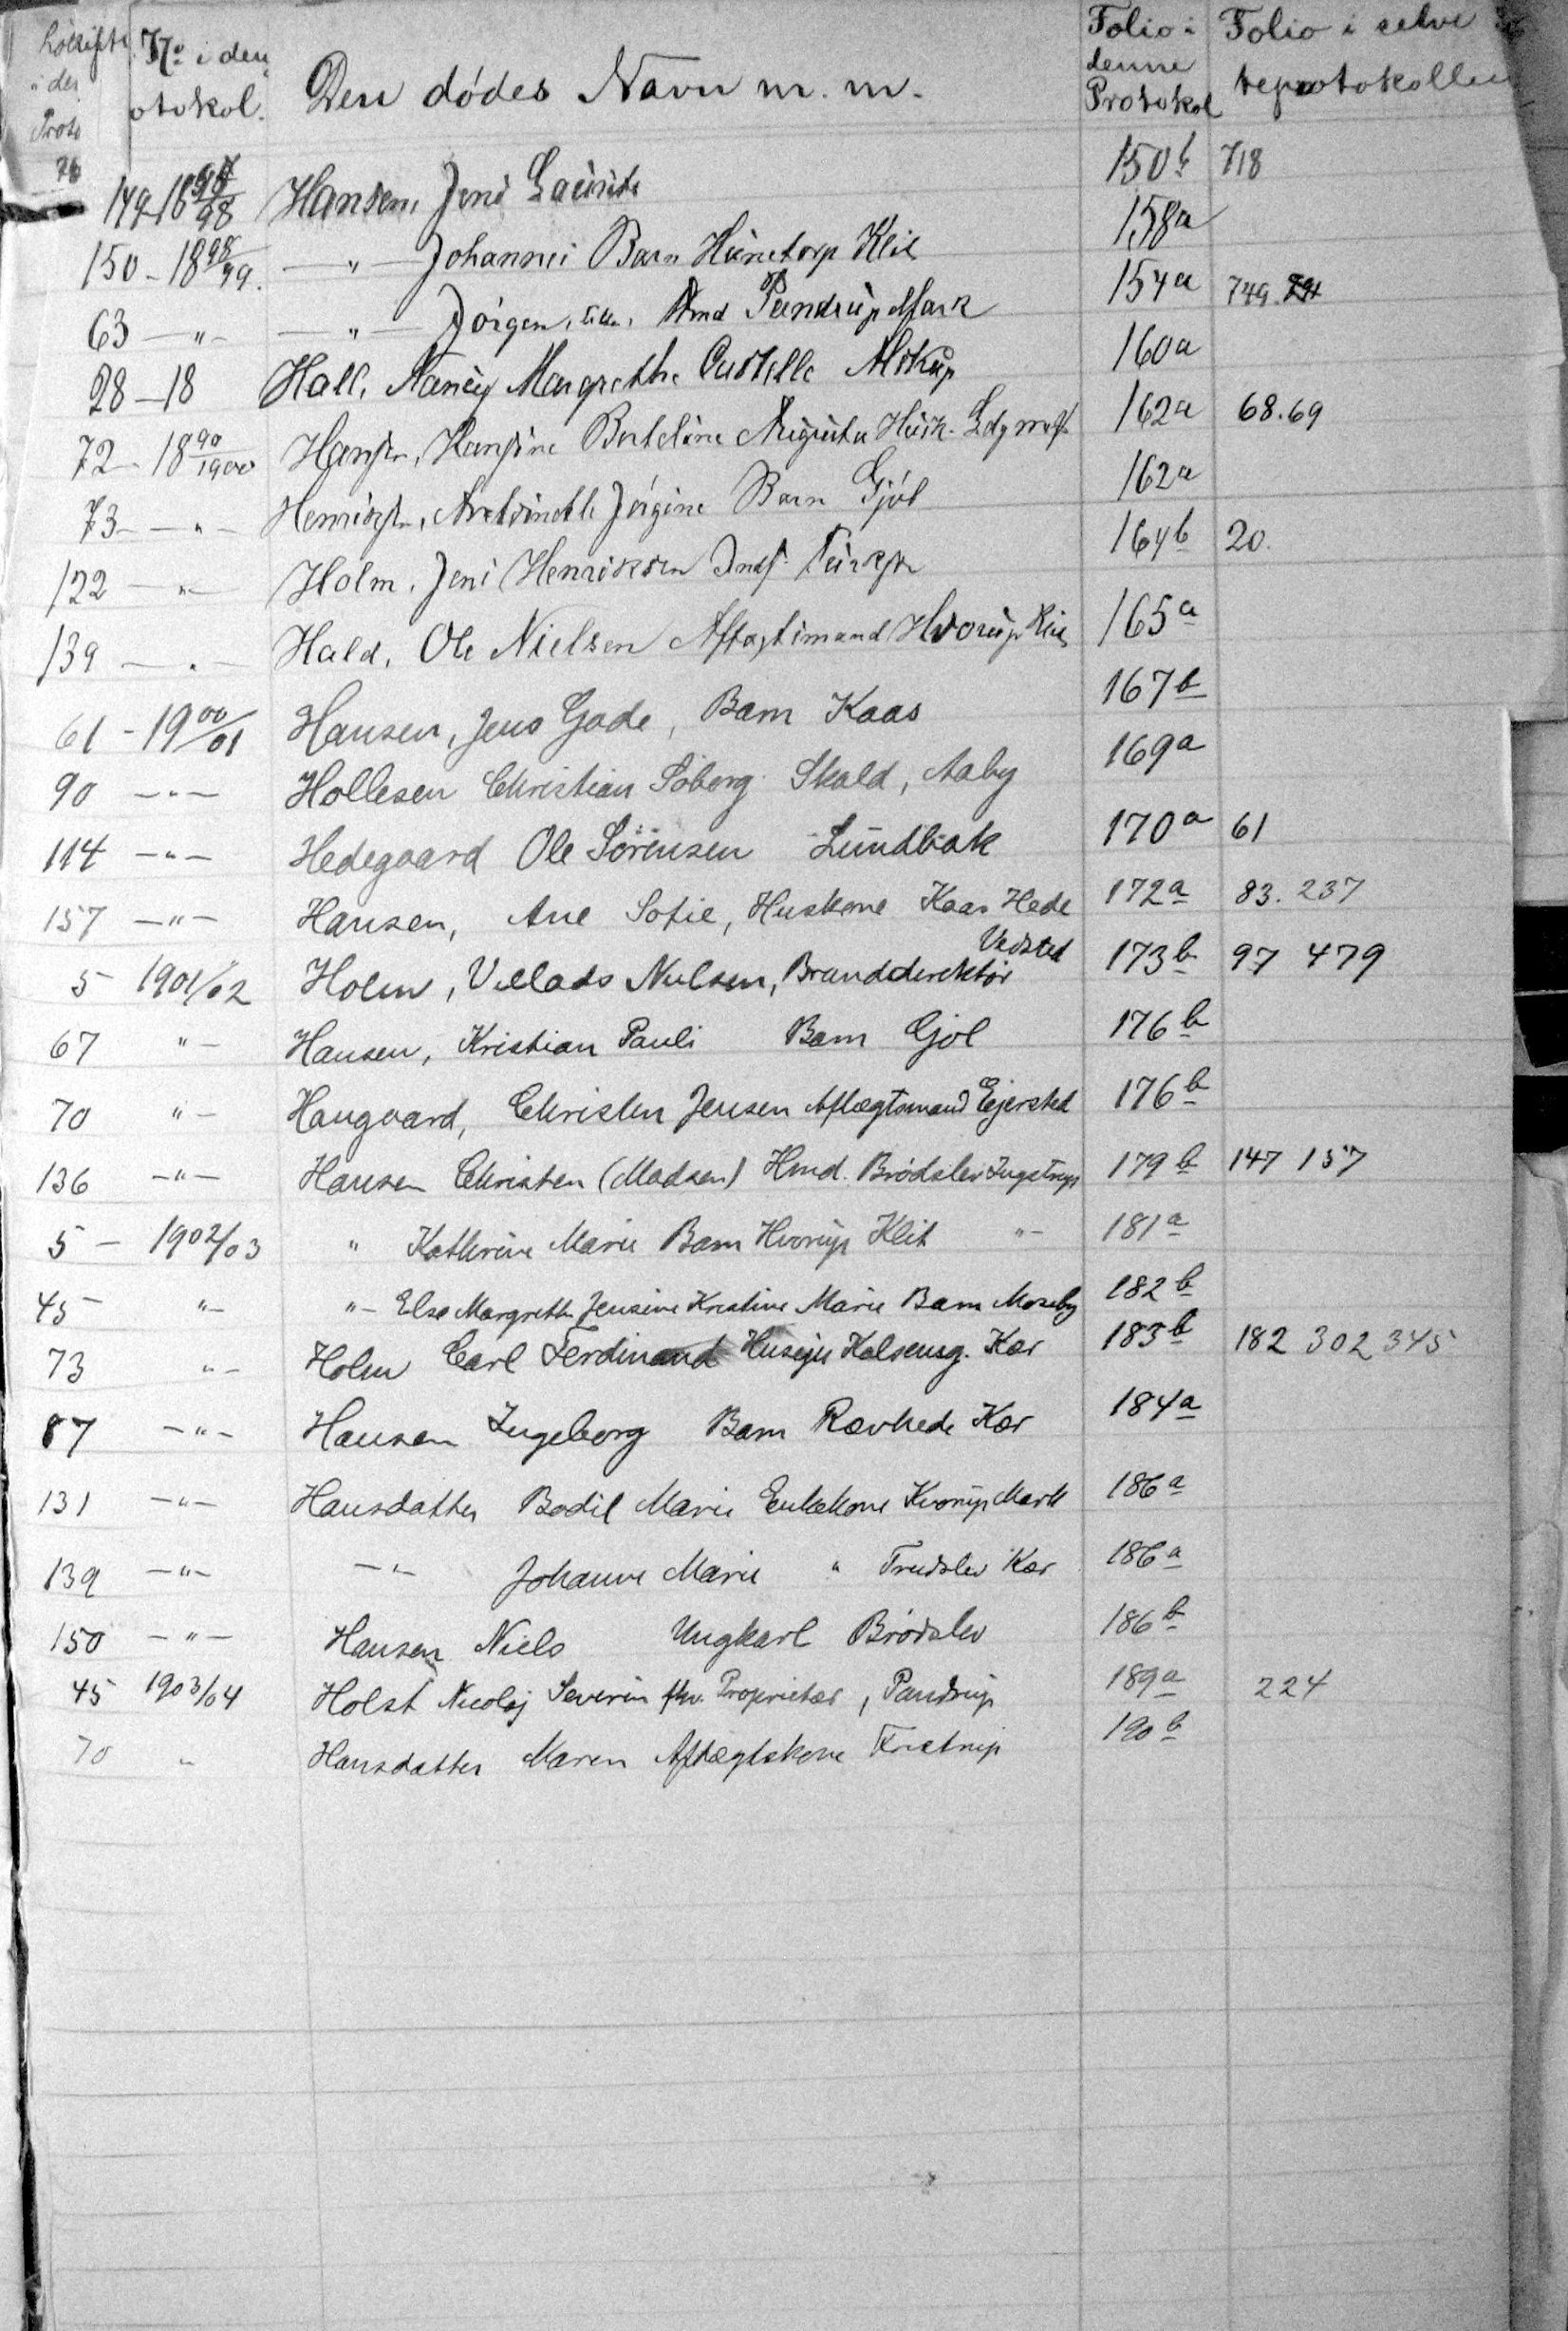 No i den otokol. Den dödes Navn m. m. Folio i denne Protokol Folio i selve
149 - 18 97/98 Hansen, Jens Laurits 150b 718
150 - 18 98/99. — " — Johannes Barn Hünetorp Klit 158a
63 — " — — " — Jörgen, Hmd Pandrup Mark 154a 749.
28 — 18 Hall, Nancy Margrethe 160a
72 - 18 99/1900 Hansen, Hansine Berteline Augusta Husk. 162a 68.69
73 — " — Henriksen, Jörgine Barn Gjöl 162a
122 — " — Holm, Jens Henriksen Inds. 164b 20.
139 — " — Hald, Ole Nielsen Aftægtsmand Hvorup Klit 165a
61 - 19 00/01 Hansen, Jens Gade, Barn Kaas 167b
90 — " — Hollesen Christian Söberg Skold, Aaby 169a
114 — " — Hedegaard Ole Sörensen Lundbak 170a 61
157 — " — Hansen, Ane Sofie, Huskone Kaas Hede 172a 83. 237
5 1901/02 Holm, Villads Nielsen, Branddirektör Vedsted 173b 97 479
67 " — Hansen, Kristian Pauli Barn Gjöl 176b
70 " — Haugaard, Christen Jensen Aftægtsmand Ejersted 176b
136 — " — Hansen Christen (Madsen) Hmd. Brödslev Ingstrup 179b 147 157
5 — 1902/03 " Kathrine Marie Barn Hvorup Klit " — 181a
45 — " — " — Else Margrethe Jensine Kristine Marie Barn Moseby 182b
73 " — Holm Carl Ferdinand Husejer Kalsensg. Kær 183b 182 302 345
87 — " — Hansen Ingeborg Barn Rævhede Kær 184a
131 — " — Hansdatter Bodil Marie Enkekone Hvorup Mark 186a
139 — " — — " — Johanne Marie " Trudslev Kær 186a
150 — " — Hansen Niels Ungkarl Brödslev 186b
45 1903/04 Holst Nicolaj Severin fhv. Proprietær, Pandrup 189a 224
70 " Hansdatter Maren Aftægtskone 190b